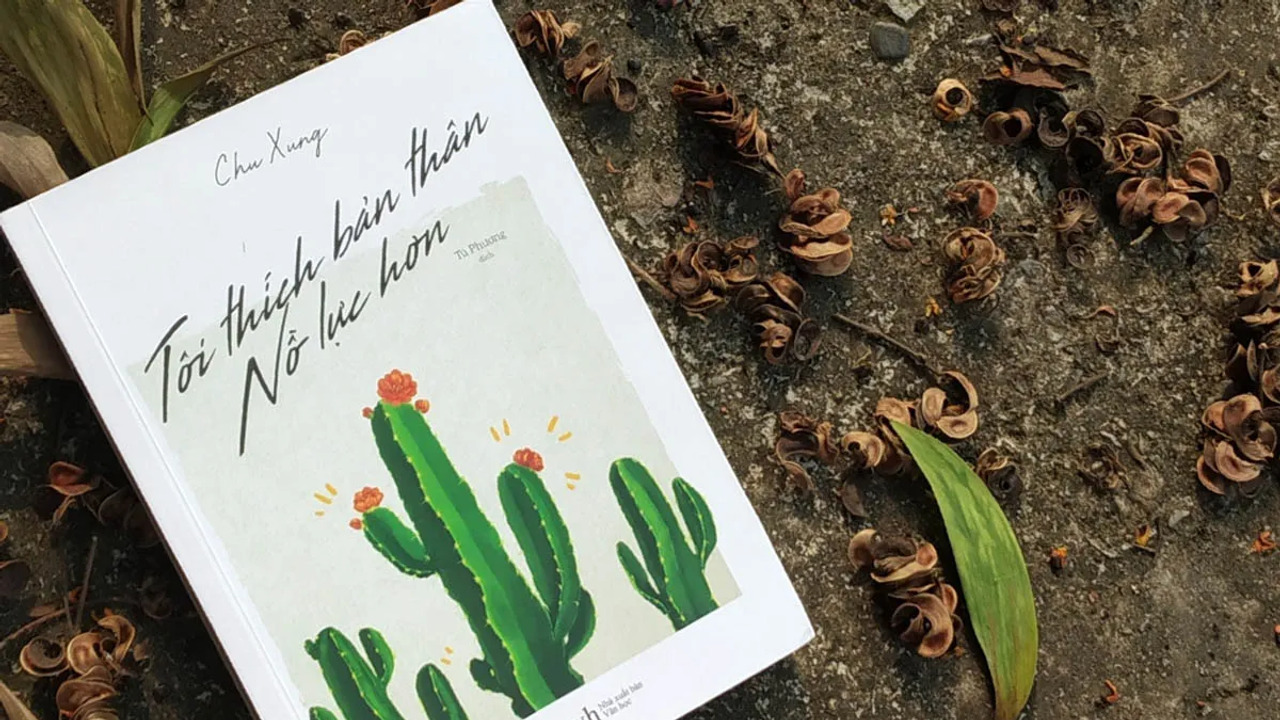 Chu Xung
Tôi thích bản thân
Nỗ lực hơn
Tú Phương
dịch
Nhà xuất bản
Văn học